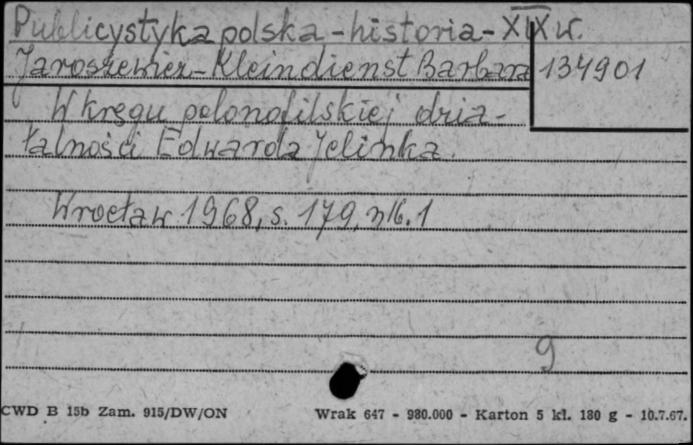 Publicystyka polska - historia - XIX w.
Jaroszewicz-Kleindienst Barbara 134901
W kręgu polonofilskiej dzia-
łalności Edwarda Jelinka.
Wrocław 1968, s. 179, nlb. 1
9
CWD B 15b Zam. 915/DW/ON Wrak 647 - 980.000 - Karton 5 kl. 180 g - 10.7.67.